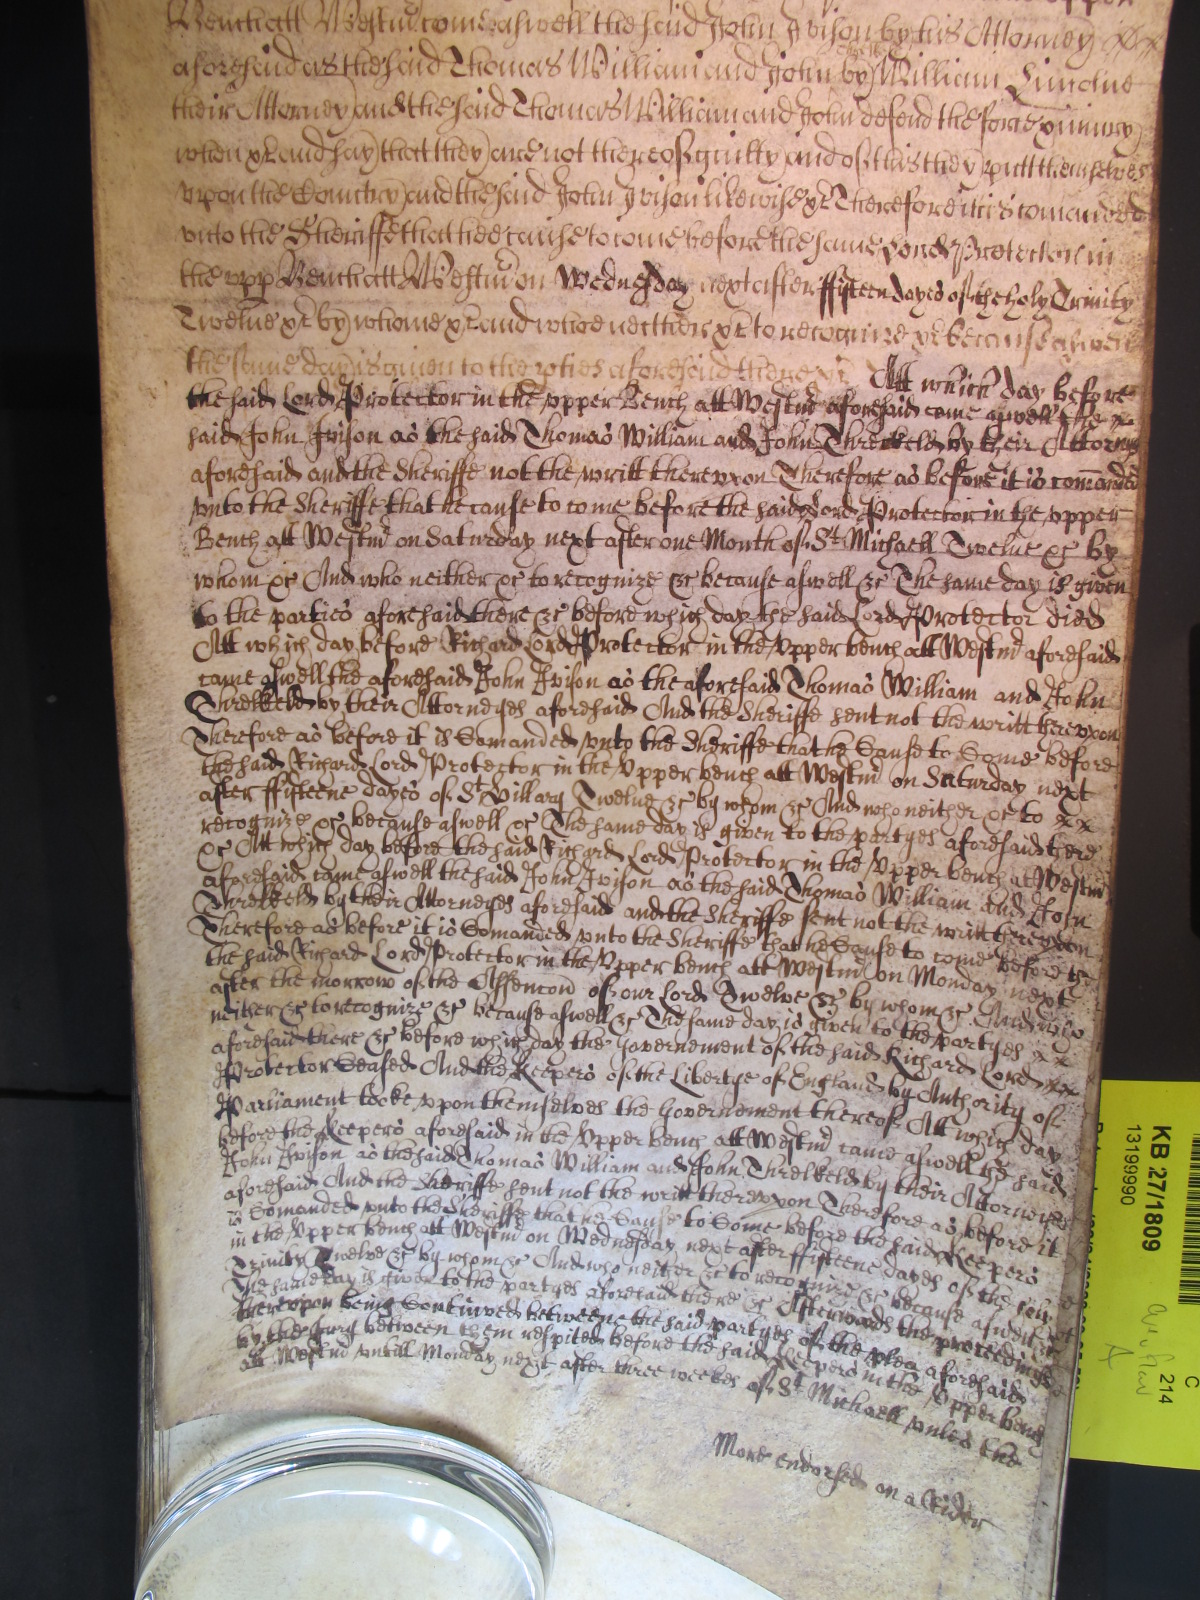 Bench att Westmr come aswell the said John Ivison by his Attorney
aforesaid as the said Thomas William and John by William
their Attorney and the said Thomas William and John defend the force & iniury
when &c and say that they are not thereof guilty and of this they putt themselves
vpon the Countrey and the said John Ivison likewise &c Therefore it is comanded
vnto the Sheriffe that hee cause to come before the same Lord Protector in
the vpp Bench att Westmr on Wednesday next after ffifteen dayes of the holy Trinity
Twelve &c by whome &c and whoe neither &c to recognize &c because aswell
the same day is given to the pties aforesaid there &c Att which day before
the said Lord Protector in the vpper Bench att Westmr aforesaid come aswell the
said John Ivison as the said Thomas William and John Threlkeld by their Attorny
aforesaid and the Sheriffe not the writt therevpon Therefore as before it is comanded
vnto the Sheriffe that he cause to come before the said Lord Protector in the vpper
Bench att Westmr on Saturday next after one Month of St Michaell Twelve &c by
whom &c And who neither &c to recognize &c because aswell &c The same day is given
to the parties aforesaid there &c before which day the said Lord Protector died
Att which day before Richard Lord Protector in the Vpper bench att Westmr aforesaid
came aswell the aforesaid John Ivison as the aforesaid Thomas William and John
Threlkeld by their Attorneyes aforesaid And the Sheriffe sent not the writt therevpon
Therefore as before it is Comanded vnto the Sheriffe that he Cause to Come before
the said Richard Lord Protector in the Vpper bench att Westmr on Saturday next
after ffifteene dayes of St Hillary Twelve &c by whom &c And who neither &c to
recognize &c because aswell &c The same day is given to the partyes aforesaid there
&c Att which day before the said Richard Lord Protector in the Vpper bench at Westmr
aforesaid came aswell the said John Ivison as the said Thomas William and John
Threlkeld by their Attorneyes aforesaid and the Sheriffe sent not the writt therevpon
Therefore as before it is Comanded vnto the Sheriffe that he Cause to come before
the said Richard Lord Protector in the Vpper bench att Westmr on Monday next
after the morrow of the Assencon of our Lord Twelve &c by whom &c And who
neither &c to recognize &c because aswell &c The same day is given to the partyes
aforesaid there &c before which day the Governement of the said Richard Lord
Protector Ceased And the Keepers of the Libertye of England by Authority of
Parliament tooke vpon themselves the Governement thereof Att which day
before the Keepers aforesaid in the Vpper bench att Westmr came aswell the said
John Ivison as the said Thomas William and John Threlkeld by their Attorneyes
aforesaid And the Sheriffe sent not the writt therevpon Therefore as before it
is Comanded vnto the Sheriffe that he Cause to Come before the said Keepers
in the Vpper bench att Westmr on Wednesday next after ffifteene dayes of the
Trinity Twelve &c by whom &c And who neither &c to recognize &c because aswell &c
The same day is given to the partyes aforesaid there &c Afterwards the proceedings
therevpon being Continued betweene the said partyes of the plea aforesaid
by the Jury between them respited before the said Keepers in the Vpper bench
att Westmr vntill Monday next after three weekes of St Michaell vnles the
More endorsed on a Rider
KB 27/1809
13199990
C
214